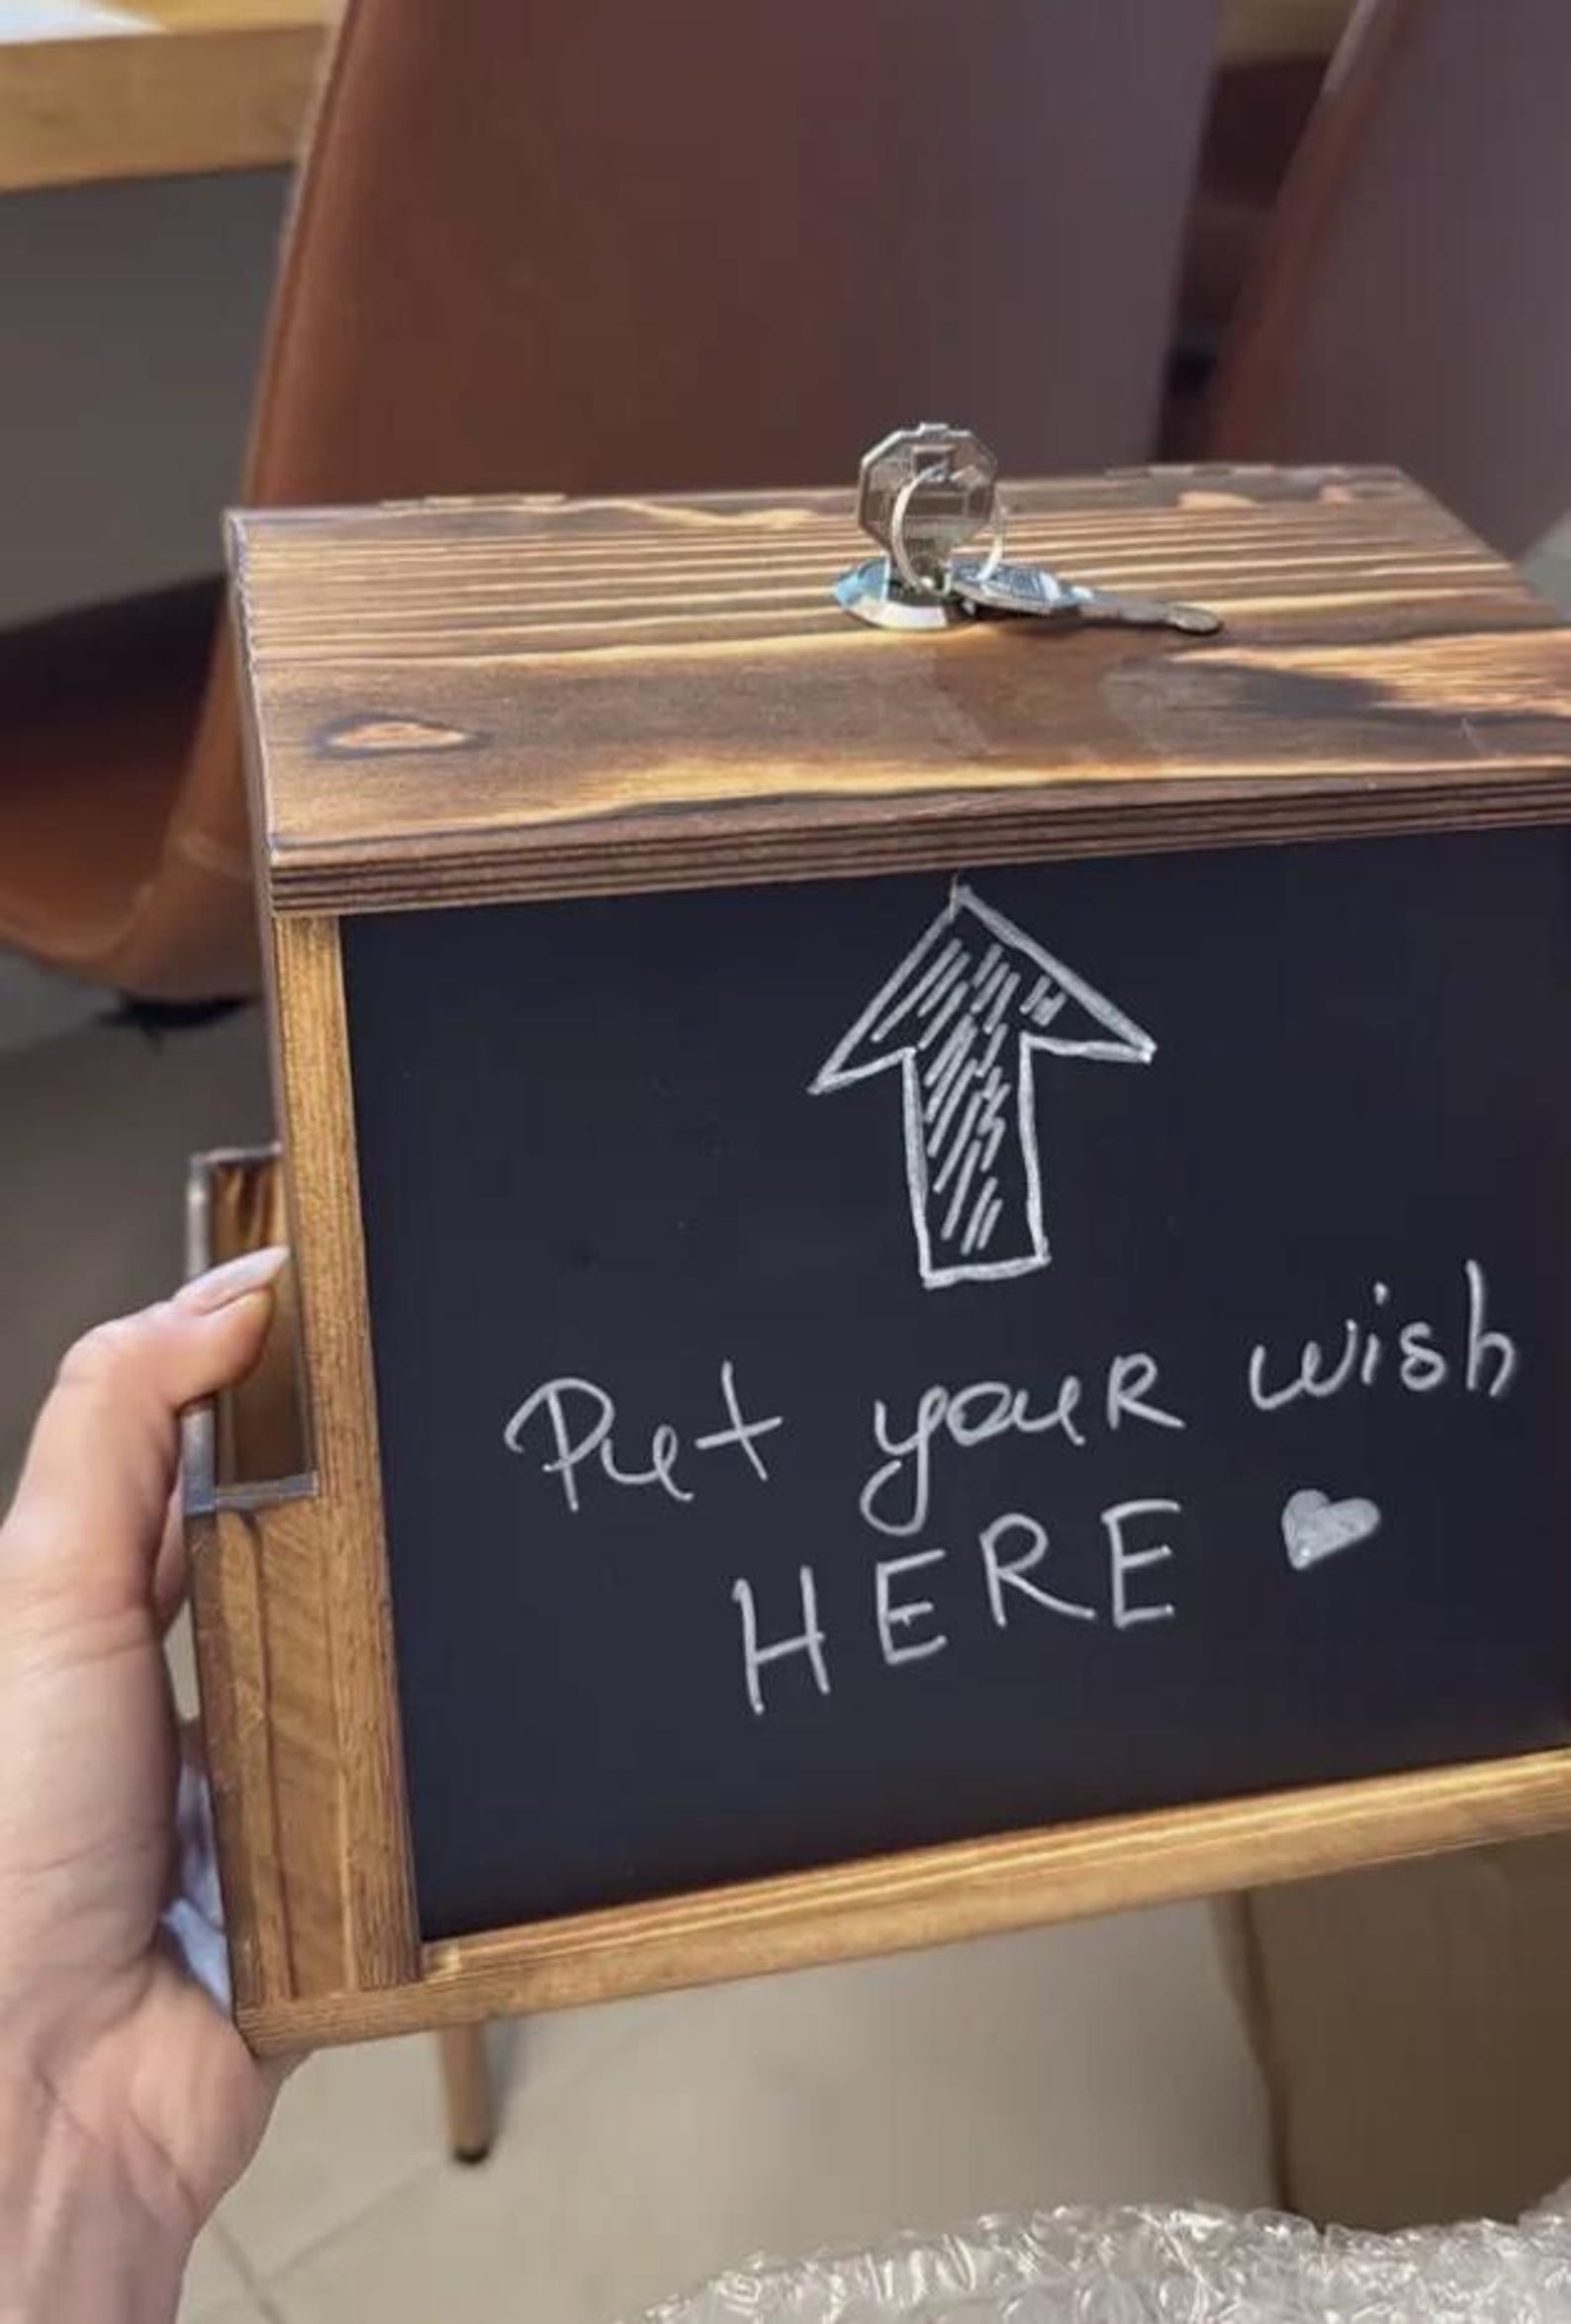 Put youR wish
HERE